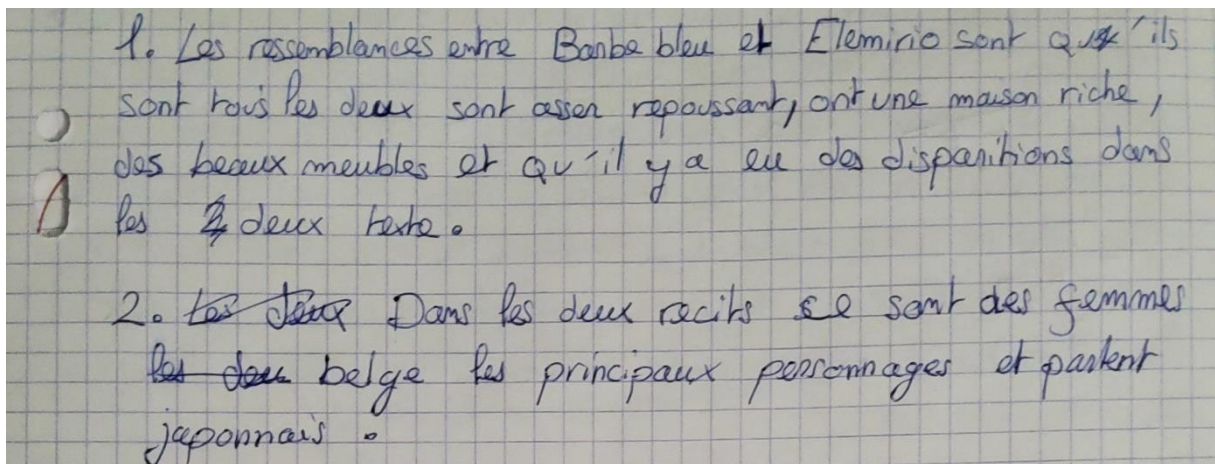 1. Les ressemblances entre Barbe bleu et Elemirio sont qu'ils
sont tous les deux sont assez repoussant, ont une maison riche,
des beaux meubles et qu'il y a eu des disparitions dans
les deux texte.
2. Les deux Dans les deux recits se sont des femmes
les deu belge les principaux personnages et parlent
japonnais.